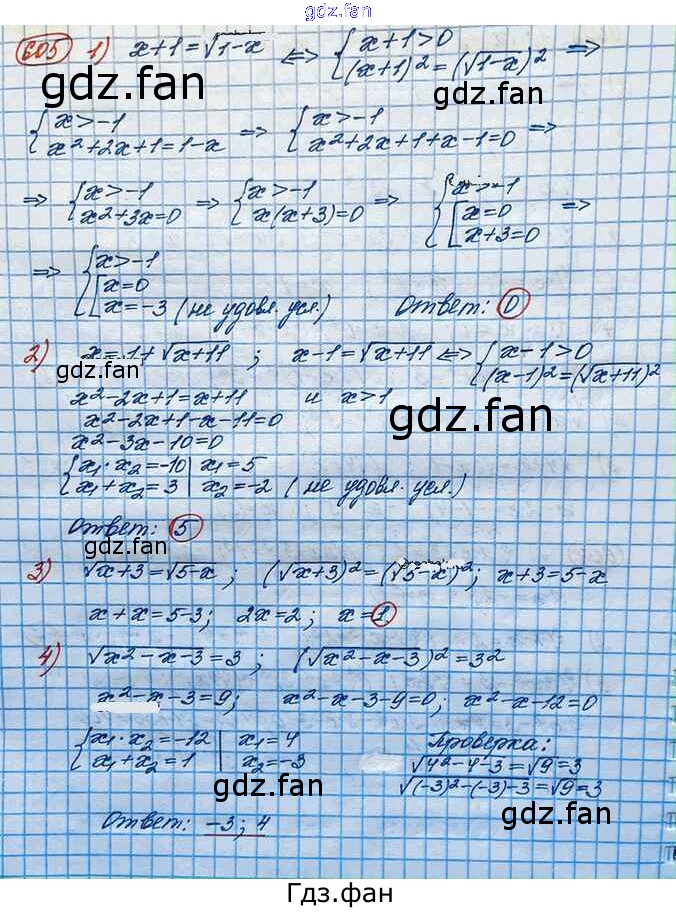 gdz.fan
605 1) x+1=√1-x <=> { x+1>0 (x+1)²=(√1-x)² =>
gdz.fan gdz.fan
{ x>-1 x²+2x+1=1-x => { x>-1 x²+2x+1+x-1=0 =>
=> { x>-1 x²+3x=0 => { x>-1 x(x+3)=0 => { x>-1 [ x=0 x+3=0 =>
=> { x>-1 [ x=0 x=-3 (не удовл. усл.) Ответ: 0
2) x=1+√x+11 ; x-1=√x+11 <=> { x-1>0 (x-1)²=(√x+11)²
gdz.fan
x²-2x+1=x+11 и x>1
gdz.fan
x²-2x+1-x-11=0
x²-3x-10=0
{ x₁·x₂=-10 | x₁=5
x₁+x₂=3 | x₂=-2 (не удовл. усл.)
Ответ: 5
gdz.fan gdz.fan
3) √x+3=√5-x ; (√x+3)²=(√5-x)²; x+3=5-x
x+x=5-3; 2x=2; x=1
4) √x²-x-3=3 ; (√x²-x-3)²=3²
x²-x-3=9; x²-x-3-9=0; x²-x-12=0
{ x₁·x₂=-12 | x₁=4 Проверка:
x₁+x₂=1 | x₂=-3 √4²-4-3=√9=3
√(-3)²-(-3)-3=√9=3
gdz.fan gdz.fan
Ответ: -3; 4
Гдз.фан